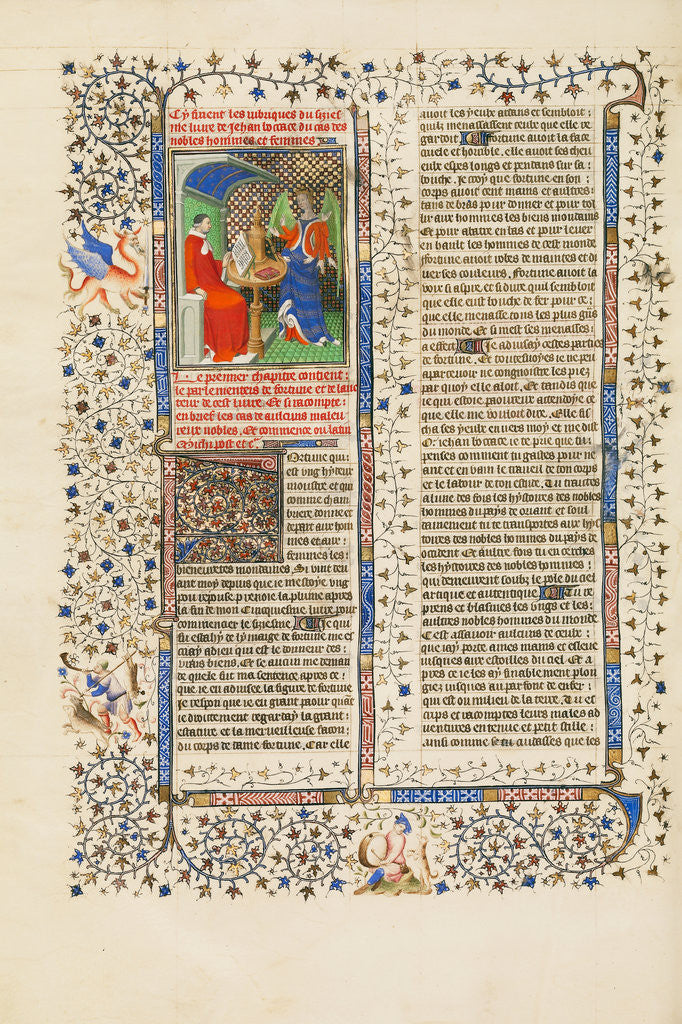 Cy finent les rubriques du sizies
me livre de Jehan bocace du cas des
nobles hommes et femmes
Le premier chapitre contient
le parlement de fortune et de lauc
teur de cest livre. Et si racompte
en brief les cas de aulcuns maleu
reux nobles. Et commence ou latin
Fortune qui
est ung hydeux
monstre et qui
comme cham
briere donne et
depart aux hom
mes et aux
femmes les
bieneuretez mondaines. Si vint dev
ant moy depuis que ie mestoye ung
pou repose prenoie la plume apres
la fin de mon Cinquiesme livre pour
commencer le siziesme. Je qui
de lymaige de fortune
adieu qui est le donneur des
vrais biens. Et se aucun me deman
de quele fut ma sentence apres ce
que ie eu advisee la figure de fortune
ie respon que ie eu grant paour quant
ie droitement regarday la grant
estature et la merveilleuse facon
du corps de dame fortune. Car elle
avoit les yeulx ardans et sembloit
quilz menassassent ceulx que elle re
gardoit. Fortune avoit la face
cruele et horrible. elle avoit ses chev
eulx espes longs et pendans sur sa
bouche. Je croy que fortune en son
corps avoit cent mains et aultres
tans de bras pour donner et pour tol
lir aux hommes les biens mondains
Et pour abatre en bas et pour lever
en hault les hommes de cest monde
fortune avoit robe de maintes et di
verses couleurs. Fortune avoit la
voix si aspre et si dure quil sembloit
que elle eust bouche de fer pour ce
que elle menasse tous les plus grans
du monde. Et si mest ses menasses
a effect. Je advisay cestes parties
de fortune. Et toutesvoyes ie ne peu
apercevoir ne congnoistre les piez
par quoy elle aloit. Et tandis que
ie qui estoie paoureux attendoye ce
que elle me vouloit dire. Elle fi
cha ses yeulx envers moy et me dist
O! iehan bocace ie te prie que tu
penses comment tu gastes pour ne
ant et en vain le travail de ton corps
et le labour de ton estude. Tu traictes
alune des fois les hystoires des nobles
hommes du pays de oriant et soub
dainement tu te transportes aux hys
toires des nobles hommes du pays de
occident. Et aultre fois tu encerches
les hystoires des nobles hommes
qui demeurent soubz le pole du ciel
artique et autentique. Tu re
prens et blasmes les ungs et les
aultres nobles hommes du monde
Cest assavoir aulcuns de ceulx
que iay porte a mes mains et esleve
iusques aux estoilles du ciel. Et a
pres ce ie les ay finablement plon
giez iusques au parfont de enfer
qui est ou milieu de la terre. Tu et
cerps et racomptes leurs males ad
ventures en tenue et petit stille
ainsi comme se tu cuidasses que les